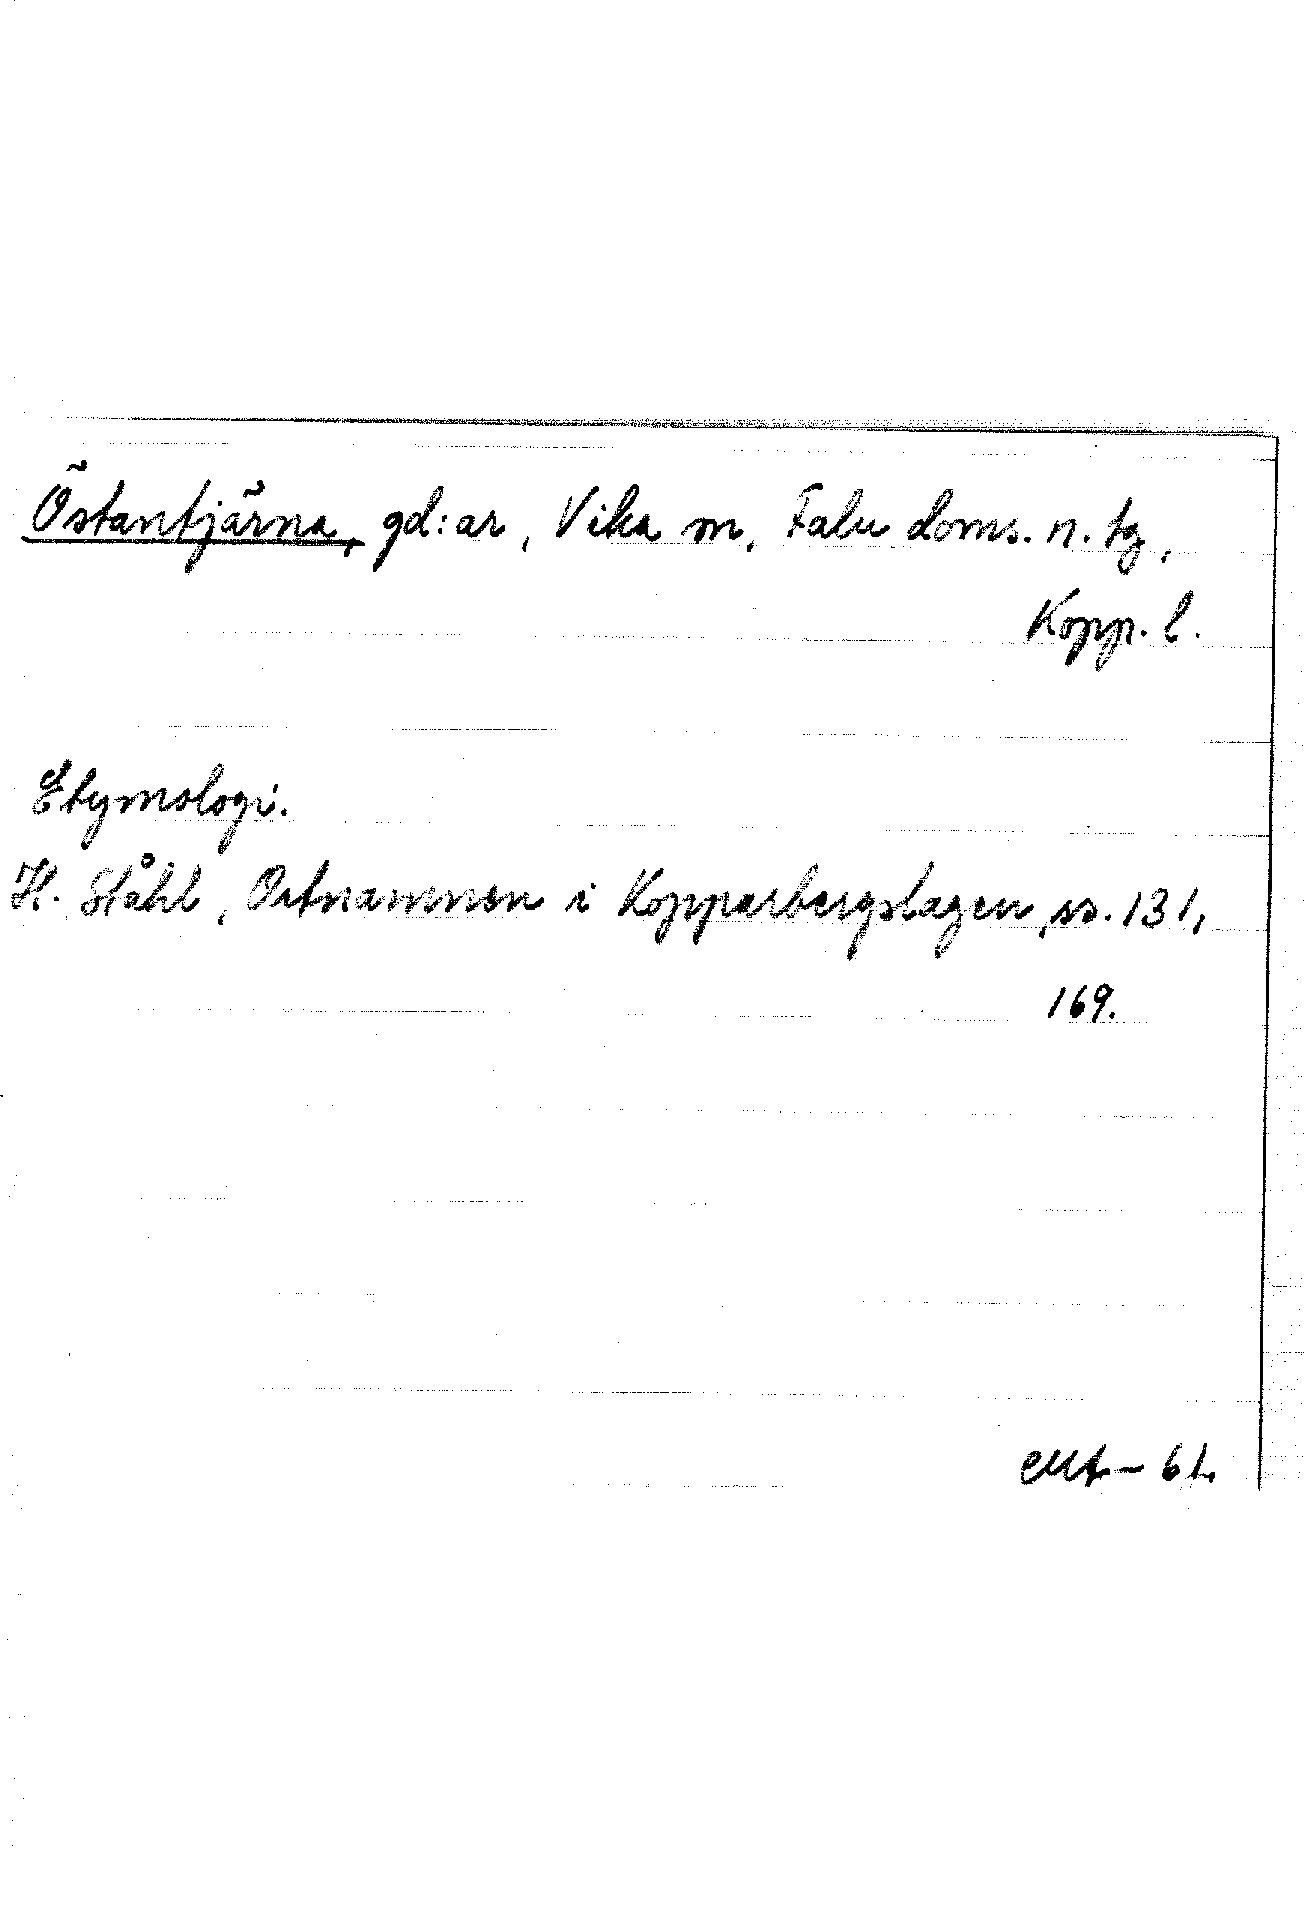 Östantjärna, gd:ar, Vika sn, Falu doms. n. tg,
Kopp. l.
Etymologi.
H. Ståhl, Ortnamnen i Kopparbergslagen, ss. 131,
169.